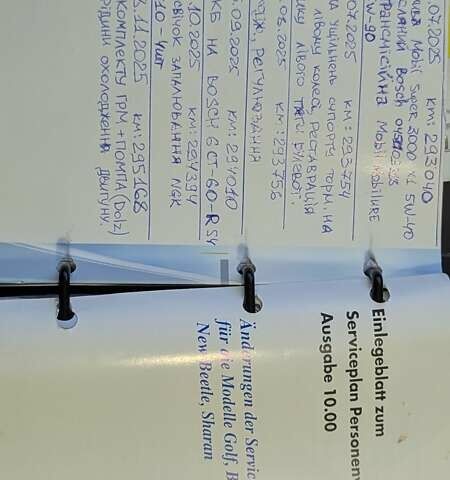 .07.2025 км: 293040
Mobil Super 3000 x1 5W-40
Bosch
трансмісійна Mobil Mobilube
W-90
.07.2025 км: 293754
та ущільнень супорту торм. на
лівому колесі, реставрація
лівого
.2025 км: 293756
регулювання
.09.2025 км: 294010
КБ на BOSCH 6CT-60-R S4
.10.2025 км: 294394
свічок запалювання NGK
10 - 4шт
.11.2025 км: 295168
комплекту ГРМ + помпа (Dolz)
рідини охолодження двигуну.
Einlegeblatt zum
Serviceplan Personenw
Ausgabe 10.00
Änderungen der Servic
für die Modelle Golf, B
New Beetle, Sharan